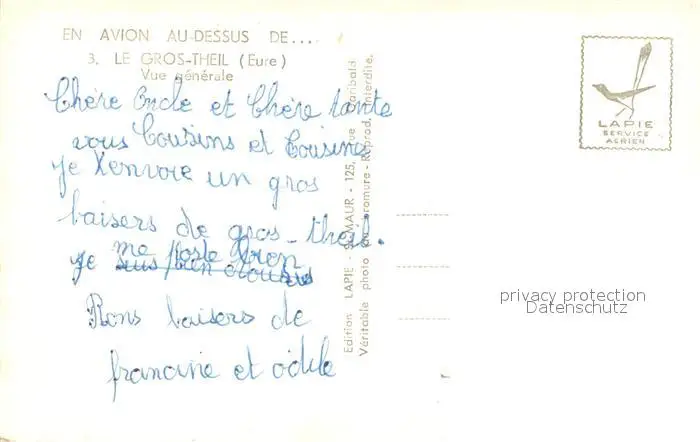 EN AVION AU-DESSUS DE....
3. LE GROS-THEIL (Eure)
Vue générale
Chère Oncle et Chère tante
vous Cousins et Cousine
je t'envoie un gros
baisers de gros-theil.
je me porte bien
Bons baisers de
francine et odile
Edition LAPIE - ST-MAUR - 125,
Véritable photo Reprod. interdite.
LAPIE
SERVICE
AERIEN
privacy protection
Datenschutz